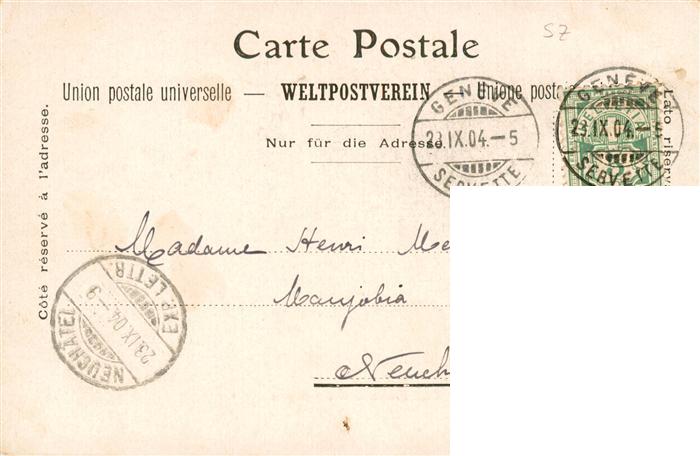 SZ
Carte Postale
Union postale universelle — WELTPOSTVEREIN — Unione post
Nur für die Adresse.
Côté réservé à l'adresse.
Lato riserv
GENÈVE
23.IX.04.–5
SERVETTE
GENÈVE
23.IX.04.–5
SERVETTE
HELVETIA
Madame Henri Me
Neuch
NEUCHÂTEL
23.IX.04.–9
EXP. LETTR.